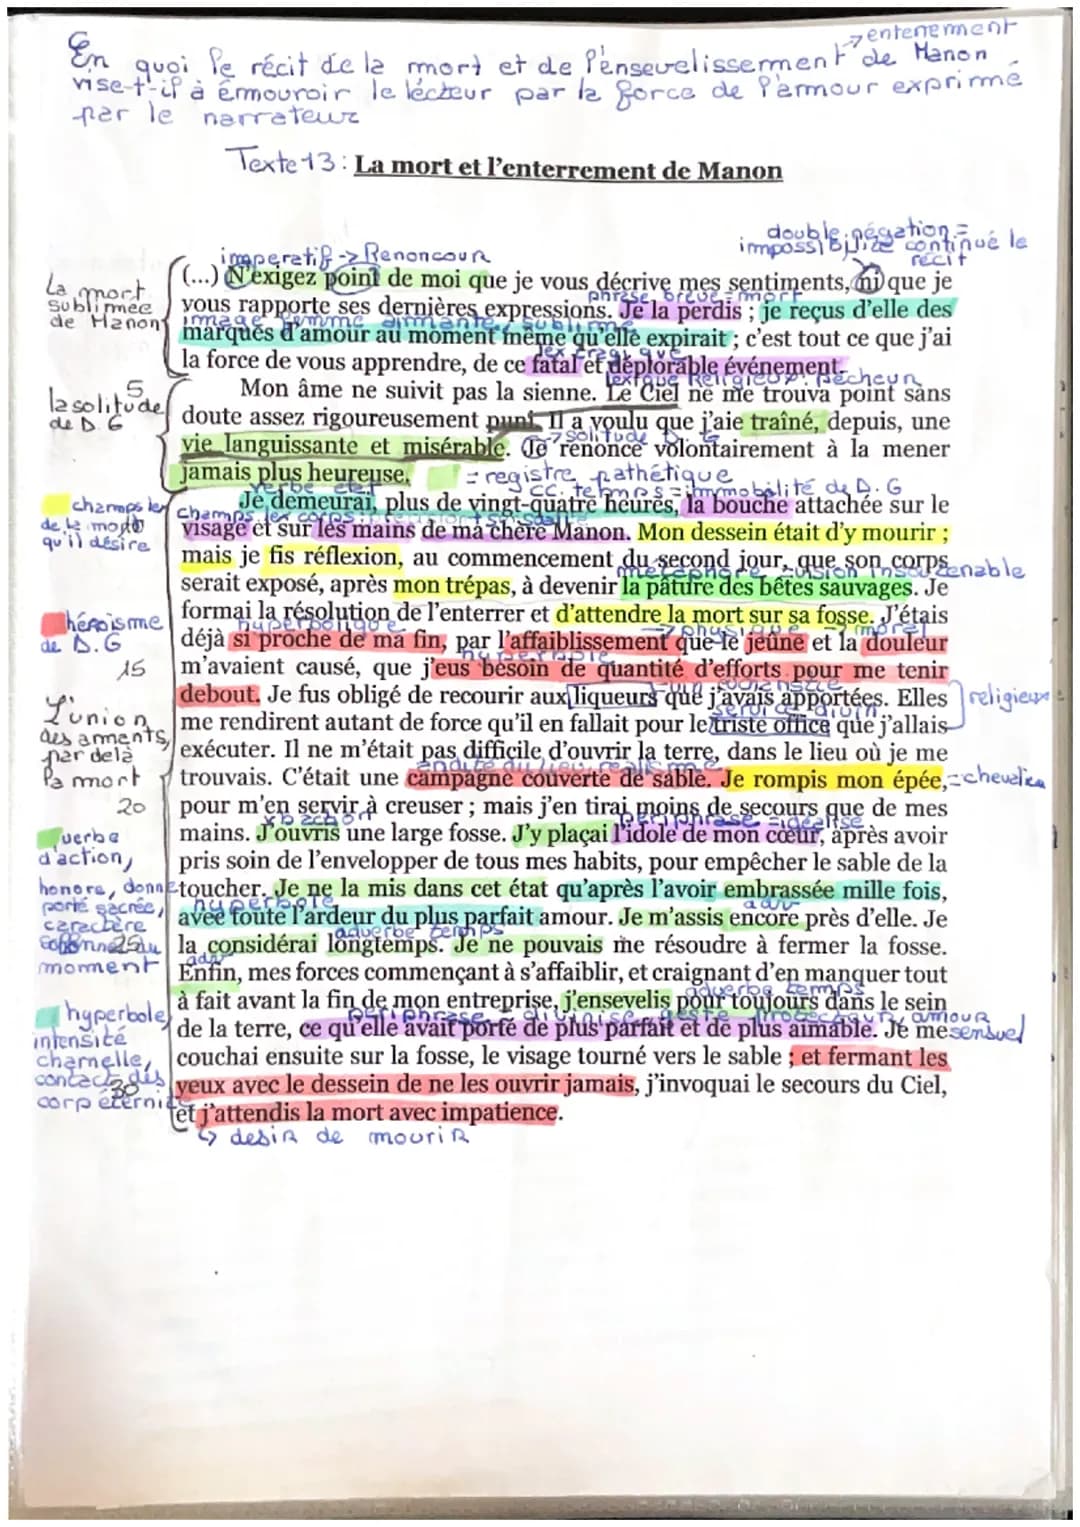 entenement
En quoi le récit de la mort et de l'ensevelissement de Manon
vise-t-il à émouvoir le lécteur par la force de l'amour exprimé
par le narrateur
Texte 13 : La mort et l'enterrement de Manon
double négation =
impossibilité continué le
récit
imperatif -> Renoncour
(...) N'exigez point de moi que je vous décrive mes sentiments, ni que je
La mort
sublimée
de Manon
phrase brève = mort
vous rapporte ses dernières expressions. Je la perdis ; je reçus d'elle des
image femme aimante, sublime
marques d'amour au moment même qu'elle expirait ; c'est tout ce que j'ai
lex tragique
la force de vous apprendre, de ce fatal et déplorable événement.
lexique Religieux : pecheur
5
Mon âme ne suivit pas la sienne. Le Ciel ne me trouva point sans
la solitude
de D. G
doute assez rigoureusement puni. Il a voulu que j'aie traîné, depuis, une
-> solitude
vie languissante et misérable. Je renonce volontairement à la mener
jamais plus heureuse.
= registre pathétique
verbe etat
CC. temps = immobilité de D. G
Je demeurai, plus de vingt-quatre heures, la bouche attachée sur le
champs lex
de la mort
qu'il désire
champs lex corps
visage et sur les mains de ma chère Manon. Mon dessein était d'y mourir ;
mais je fis réflexion, au commencement du second jour, que son corps
métaphore vision insoutenable
serait exposé, après mon trépas, à devenir la pâture des bêtes sauvages. Je
formai la résolution de l'enterrer et d'attendre la mort sur sa fosse. J'étais
héroïsme
de D.G
hyperbolique
-> physique
déjà si proche de ma fin, par l'affaiblissement que le jeûne et la douleur
15
hyperbole
m'avaient causé, que j'eus besoin de quantité d'efforts pour me tenir
debout. Je fus obligé de recourir aux liqueurs que j'avais apportées. Elles
religieux
L'union
des amants,
par delà
la mort
me rendirent autant de force qu'il en fallait pour le triste office que j'allais
exécuter. Il ne m'était pas difficile d'ouvrir la terre, dans le lieu où je me
trouvais. C'était une campagne couverte de sable. Je rompis mon épée,
20
pour m'en servir à creuser ; mais j'en tirai moins de secours que de mes
periphrase = idéalise
mains. J'ouvris une large fosse. J'y plaçai l'idole de mon cœur, après avoir
verbe
d'action,
honore, donne
porté sacrée,
caractère
pris soin de l'envelopper de tous mes habits, pour empêcher le sable de la
toucher. Je ne la mis dans cet état qu'après l'avoir embrassée mille fois,
hyperbole
adv
avec toute l'ardeur du plus parfait amour. Je m'assis encore près d'elle. Je
adverbe temps
25
moment
la considérai longtemps. Je ne pouvais me résoudre à fermer la fosse.
adv
Enfin, mes forces commençant à s'affaiblir, et craignant d'en manquer tout
adverbe temps
à fait avant la fin de mon entreprise, j'ensevelis pour toujours dans le sein
hyperbole,
intensité
charnelle,
contact des
corp éternité
periphrase = divinise
geste protecteur, amour
sensuel
de la terre, ce qu'elle avait porté de plus parfait et de plus aimable. Je me
couchai ensuite sur la fosse, le visage tourné vers le sable ; et fermant les
30
yeux avec le dessein de ne les ouvrir jamais, j'invoquai le secours du Ciel,
et j'attendis la mort avec impatience.
-> desir de mourir